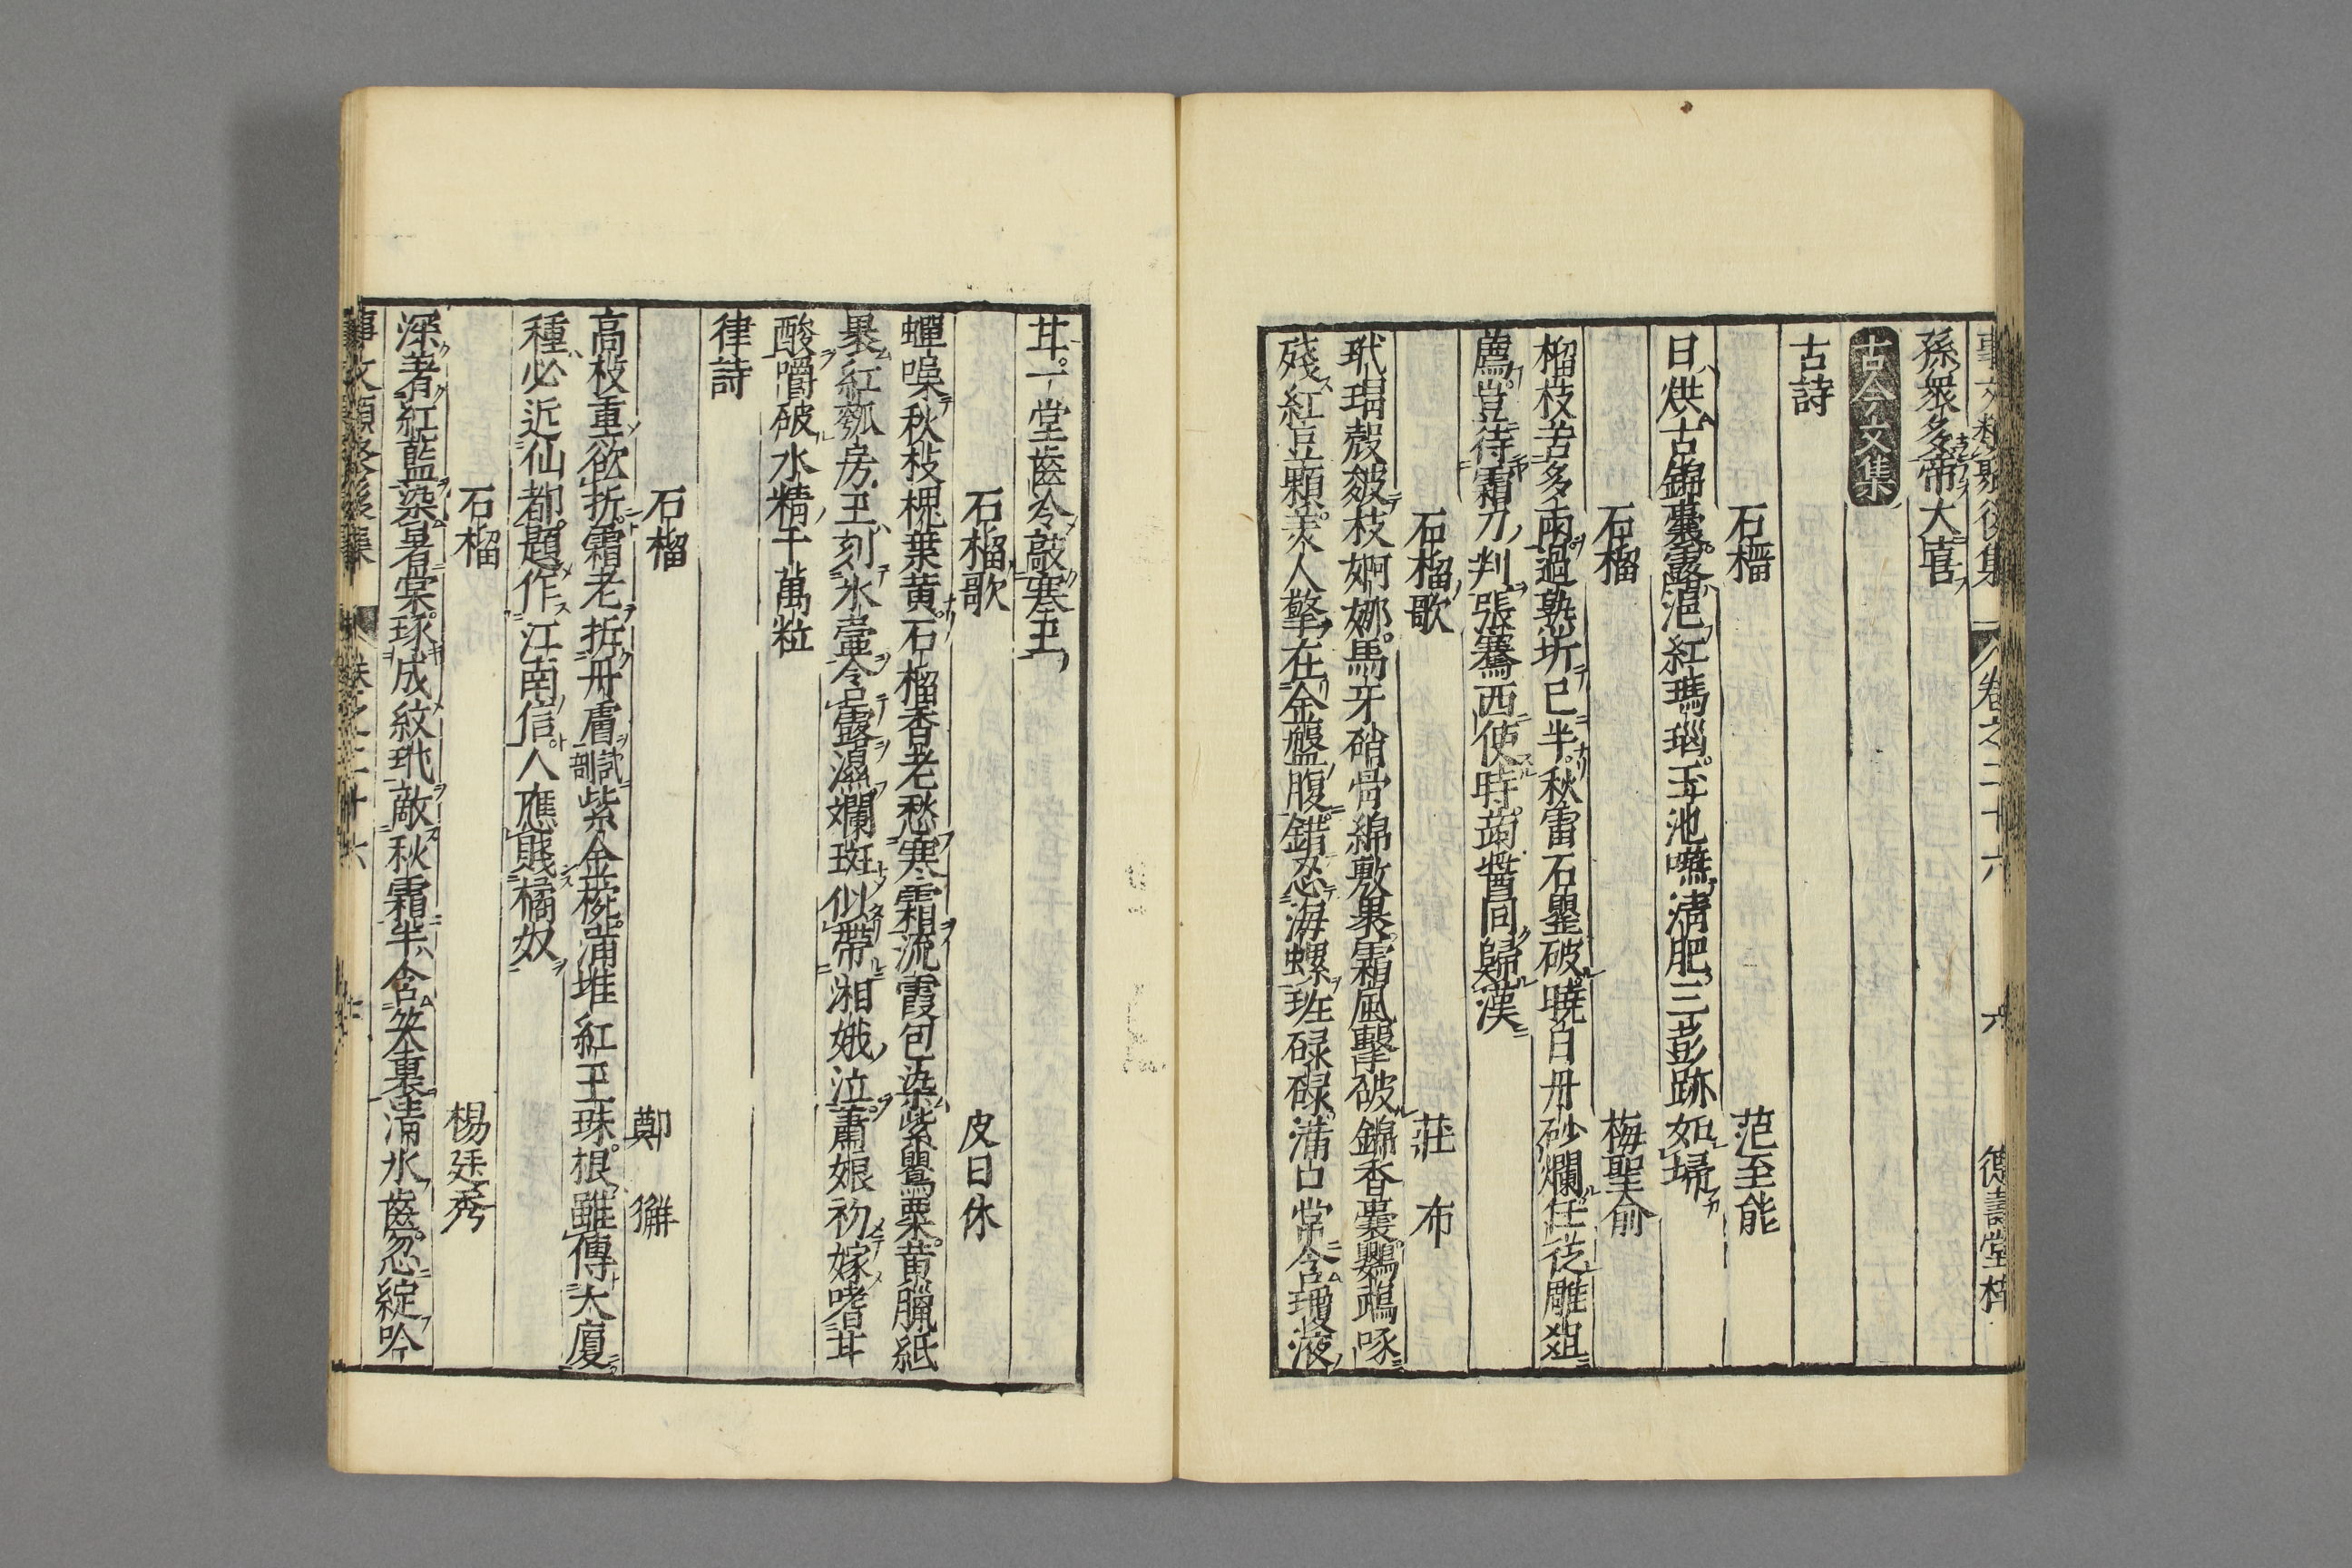 事文類聚後集　卷之二十六　六　德壽堂梓
孫衆多帝大喜
古今文集
古詩
石榴　范至能
日烘古錦囊露浥紅瑪瑙玉池嚥清肥三彭跡如掃
石榴　梅聖俞
榴枝苦多雨過熟坼已半秋雷石罌破曉日丹砂爛任從雕俎
薦豈待霜刀判張騫西使時蒟醬同歸漢
石榴歌　莊布
玳瑁殼皴枝婀娜馬牙硝骨綿敷裹霜風擊破錦香囊鸚鵡啄
殘紅豆顆美人擎在金盤腹錯忍海螺班碌碌滿口常含瓊液
甘一堂齒冷敲寒玉
石榴歌　皮日休
蟬噪秋枝槐葉黄石榴香老愁寒霜流霞包染紫鸎粟黄臘紙
裹紅瓠房玉刻氷壷含露濕斕斑似帶湘娥泣蕭娘初嫁嗜甘
酸嚼破水精千萬粒
律詩
石榴　鄭獬
高枝重欲折霜老拆丹膚試剖紫金椀滿堆紅玉珠根雖傳大廈
種必近仙都題作江南信人應賤橘奴
石榴　楊廷秀
深著紅藍染暑裳琢成紋玳敵秋霜半含笑裏清氷齒忽綻吟
事文類聚後集　卷之二十六